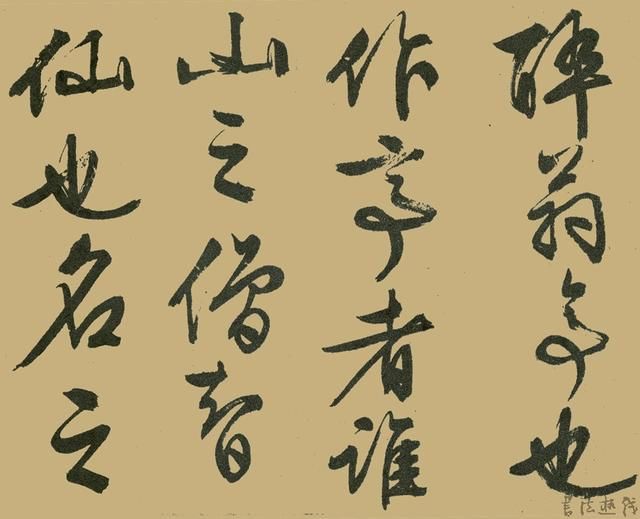 醉翁亭也
作亭者谁
山之僧智
仙也名之
书法在线